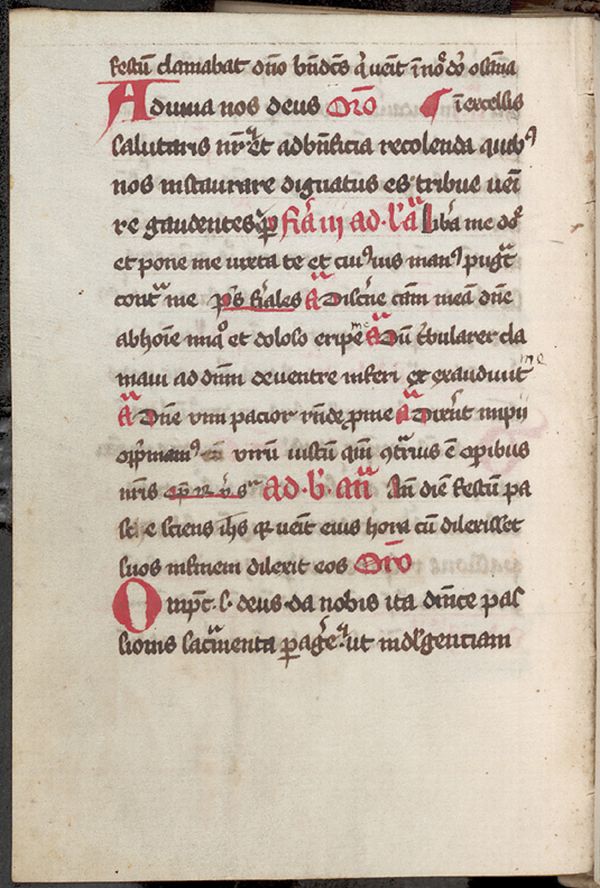 festū clamabat dn̄o bn̄dcs q̇ ueit ī noē do osāna
Adiuua nos deus Oro ī excelsis
salutaris nr̄ Et ad bn̄ficia recolenda quibꝰ
nos instaurare dignatus es tribue ueni
re gaudentes p̲ Fīa iij ad l'a Libͣa me dē
et pone me iuxta te et cuiꝰuis manꝰ pugͭ
contͣ me ps̄ fīales A Discn̄e cām meā dn̄e
ab hoīe iniqͦ et doloso eripe me A Dū tͥbularer cla
maui ad dn̄m de uentre inferi et exaudiuit me
A Dn̄e uim pacior rn̄de p me A Dixert impii
opp̄mamꝰ uirū iustū qm̄ ꝯtͣrius ē opibus
nr̄is ad b' an̄ An̄ diē festū pa
sce sciens ih̄s qꝛ ueīt eius hora cū dilexisset
suos in finem dilexit eos Oro
Omp̄c s deus da nobis ita dn̄ice pas
sionis sacͣmenta pagͤe ut indulgenciam